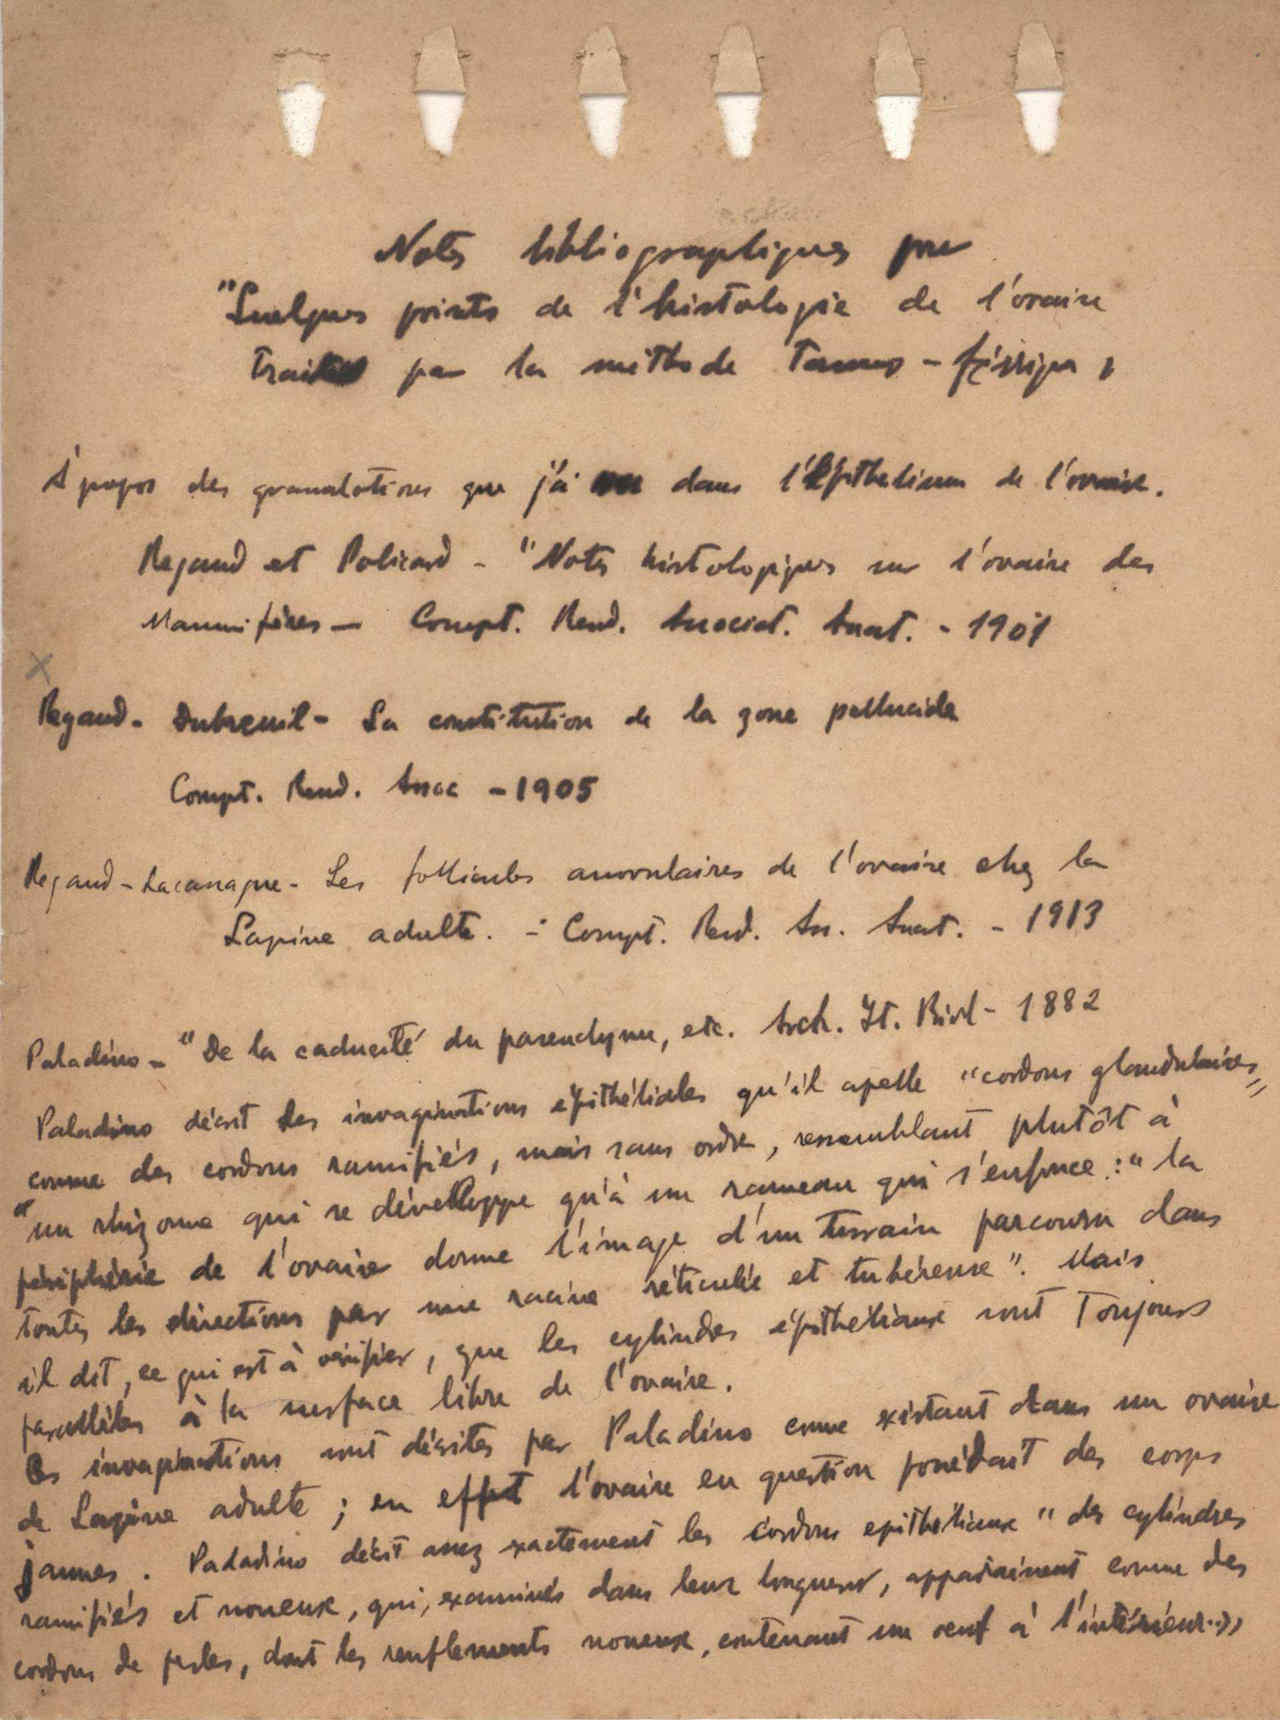 Notes bibliographiques pour
"Quelques points de l'histologie de l'ovaire
traités par la méthode Tanno-férrique"
A propos des granulations que j'ai vu dans l'Epithelium de l'ovaire.
Regaud et Policard - "Notes histologiques sur l'ovaire des
Mammifères - Compt. Rend. Associat. Anat. - 1901
Regaud - Dubreuil - La constitution de la zone pellucida
Compt. Rend. Assoc - 1905
Regaud - Lacassagne - Les follicules anovulaires de l'ovaire chez la
Lapine adulte. - Compt. Rend. Ass. Anat. - 1913
Paladino - "De la caducité du parenchyme, etc. Arch. It. Biol - 1882
Paladino décrit des invaginations épithéliales qu'il apelle "cordons glandulaires"
comme des cordons ramifiés, mais sans ordre, ressemblant plutôt à
"un rhizome qui se dévelloppe qu'à un rameau qui s'enfonce: "la
périphérie de l'ovaire donne l'image d'un terrain parcouru dans
toutes les directions par une racine réticulée et tubéreuse". Mais
il dit, ce qui est à vérifier, que les cylindres épithéliaux sont toujours
parallèles à la surface libre de l'ovaire.
Ces invaginations sont décrites par Paladino comme existant dans un ovaire
de Lapine adulte; en effet l'ovaire en question posédait des corps
jaunes. Paladino décrit assez exactement les cordons epitheliaux "des cylindres
ramifiés et noueux, qui, examinés dans leur longueur, apparaissent comme des
cordons de perles, dont les renflements noueux, contenant un oeuf à l'intérieur..»